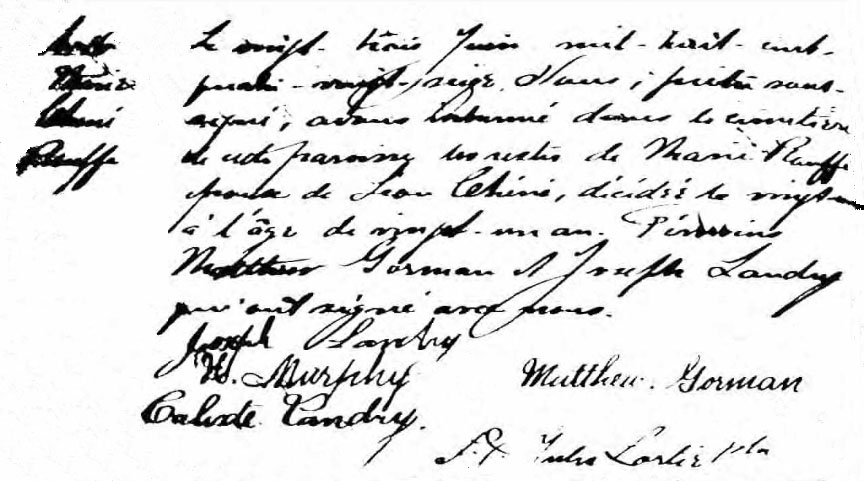 Le vingt-trois Juin mil-huit-cent-
Marie quatre-vingt-seize, Nous, prêtre sous-
Chéné signé, avons inhumé dans le cimetière
Plouffe de cette paroisse les restes de Marie Plouffe
épouse de Léon Chéné, décédée le vingt-un
à l'âge de vingt-un an. Témoins
Matthew Gorman et Joseph Landry
qui ont signé avec nous.
Joseph Landry
W. Murphy Matthew Gorman
Calixte Landry.
Jules Lortie Ptre